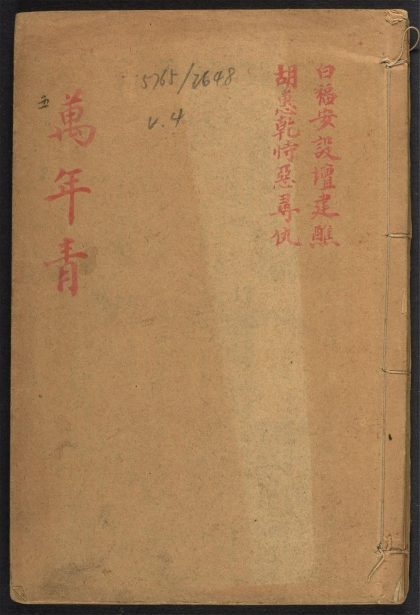 白福安設壇建醮
胡惠乾恃惡尋仇
5765/2648
v.4
五
萬年青